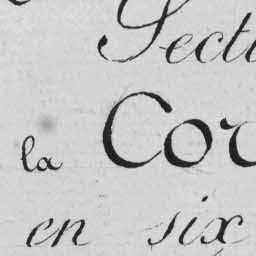 Secti
la Cor
en six